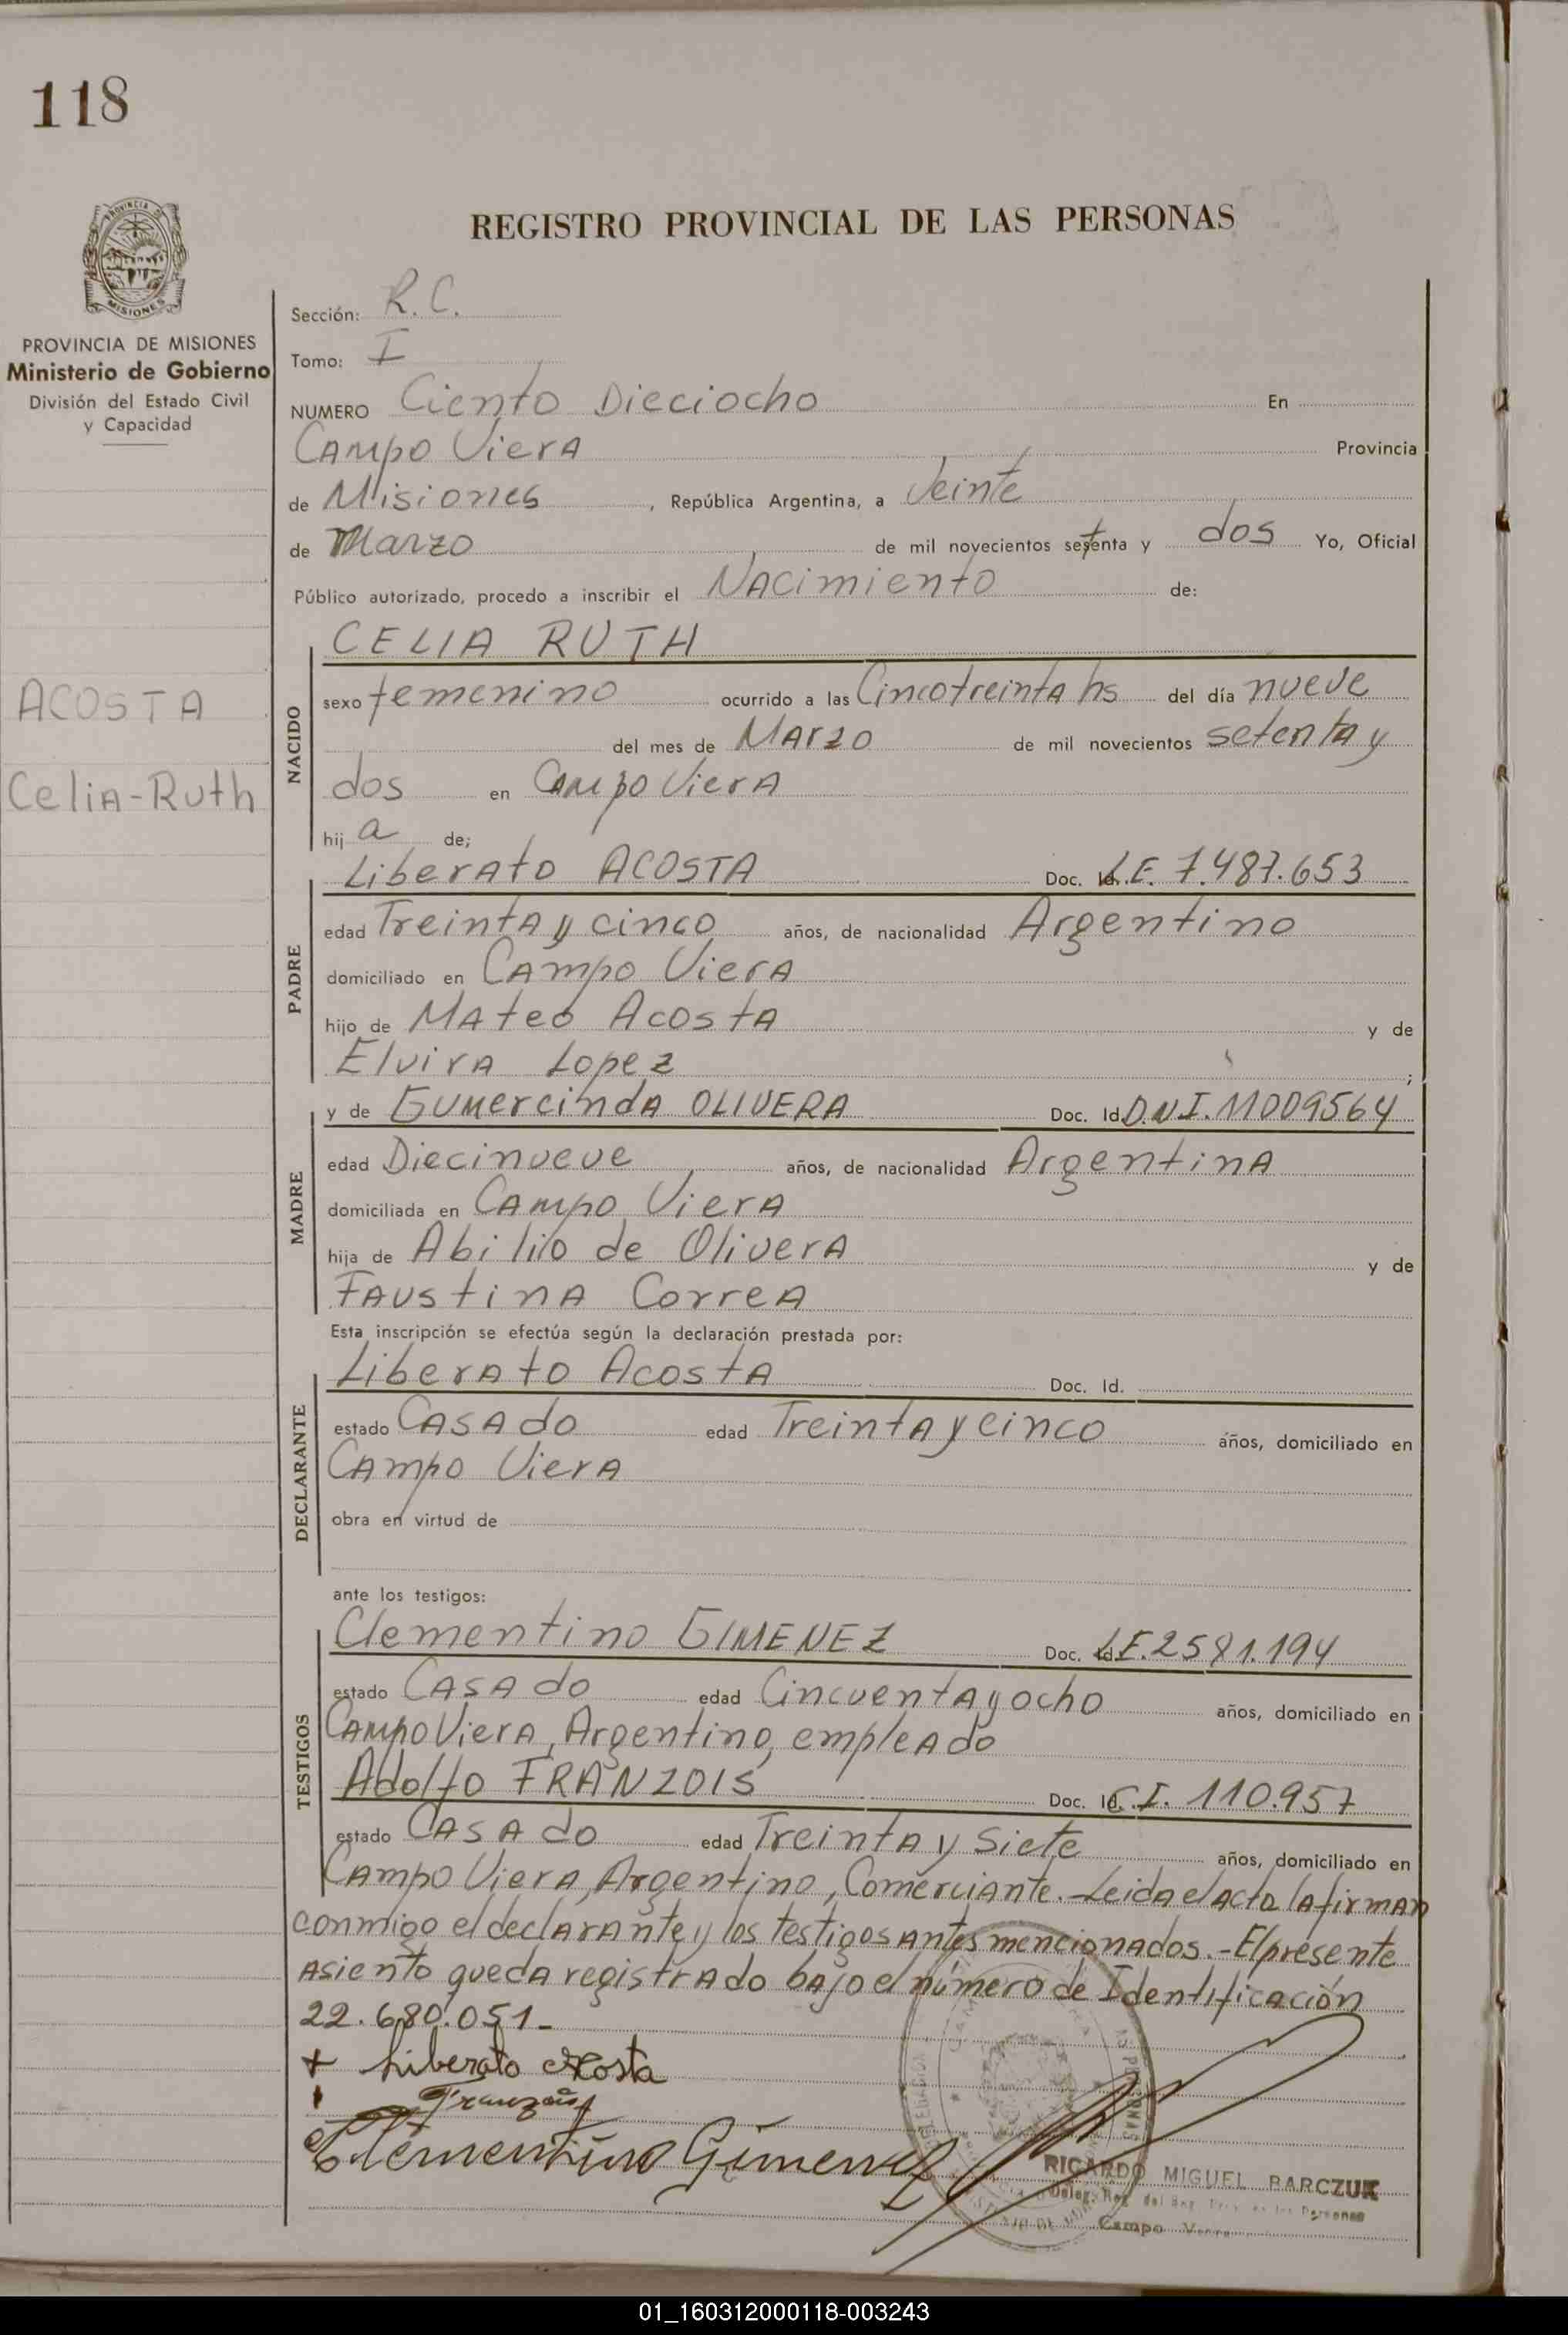 118
PROVINCIA DE
MISIONES
PROVINCIA DE MISIONES
Ministerio de Gobierno
División del Estado Civil
y Capacidad
ACOSTA
Celia-Ruth
REGISTRO PROVINCIAL DE LAS PERSONAS
Sección: R.C.
Tomo: I
NUMERO Ciento Dieciocho En
Campo Viera Provincia
de Misiones, República Argentina, a Veinte
de Marzo de mil novecientos setenta y dos Yo, Oficial
Público autorizado, procedo a inscribir el Nacimiento de:
NACIDO
CELIA RUTH
sexo femenino ocurrido a las Cincotreinta hs del día nueve
del mes de Marzo de mil novecientos setenta y
dos en Campo Viera
hij a de;
PADRE
Liberato ACOSTA Doc. Id. L.E. 7.487.653
edad Treinta y cinco años, de nacionalidad Argentino
domiciliado en Campo Viera
hijo de Mateo Acosta y de
Elvira Lopez ;
MADRE
y de Gumercinda OLIVERA Doc. Id. D.N.I. 11009564
edad Diecinueve años, de nacionalidad Argentina
domiciliada en Campo Viera
hija de Abilio de Olivera y de
Faustina Correa
Esta inscripción se efectúa según la declaración prestada por:
DECLARANTE
Liberato Acosta Doc. Id.
estado Casado edad Treinta y cinco años, domiciliado en
Campo Viera
obra en virtud de
ante los testigos:
TESTIGOS
Clementino GIMENEZ Doc. Id. L.E. 2581.194
estado Casado edad Cincuenta y ocho años, domiciliado en
Campo Viera, Argentino, empleado
Adolfo FRANZOIS Doc. Id. C.I. 110.957
estado Casado edad Treinta y Siete años, domiciliado en
Campo Viera, Argentino, Comerciante.-Leida el acta la firman
conmigo el declarante y los testigos antes mencionados.-El presente
asiento queda registrado bajo el número de Identificación
22.680.051-
+ Liberato Acosta
Clementino Gimenez
RICARDO MIGUEL BARCZUK
Campo Viera
01_160312000118-003243